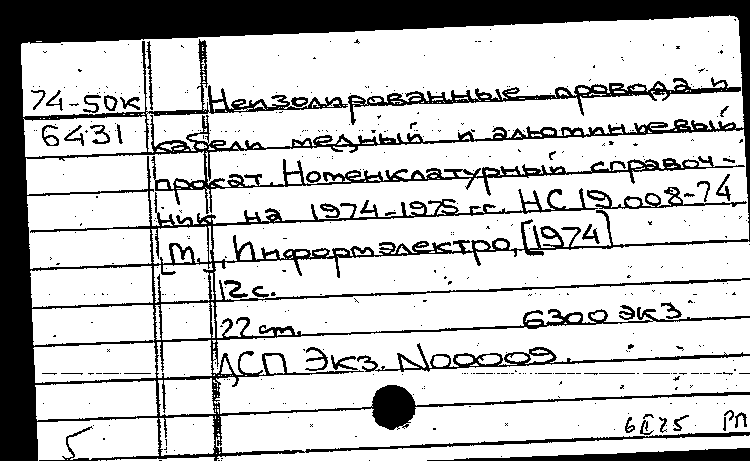 74-50к Неизолированные провода и
6431 кабели медный и алюминиевый
прокат. Номенклатурный справоч-
ник на 1974-1975 г.г. НС 19.008-74
[М.], Информэлектро, [1974]
12 с.
22 см. 6300 экз.
ДСП Экз. N00009.
5 6 II 75 РП